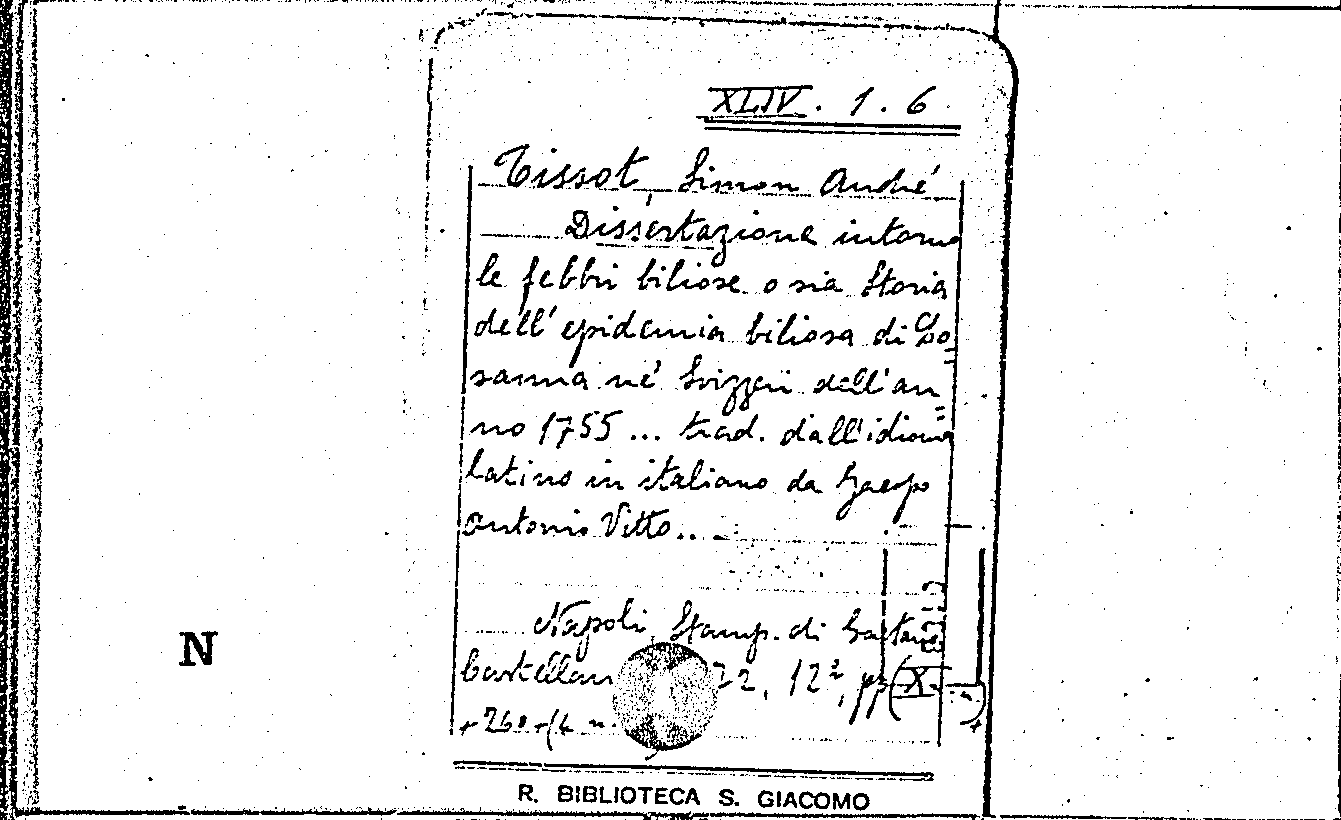 XLIV. 1. 6
Tissot, Simon André
Dissertazione intorno
le febbri biliose o sia Storia
dell'epidemia biliosa di Lo=
sanna ne' Svizzeri dell'an=
no 1755 ... trad. dall'idioma
latino in italiano da
Antonio Vitto...
Napoli, Stamp. di Gaetano
12º, pp
N
R. BIBLIOTECA S. GIACOMO